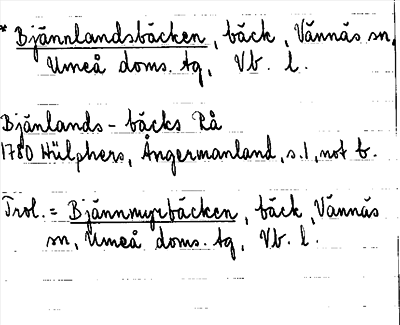 * Bjännlandsbäcken, bäck, Vännäs sn,
Umeå doms. tg, Vb. l.
Bjänlands-bäcks Rå
1780 Hülphers, Ångermanland, s. 1, not b.
Trol. = Bjännmyrbäcken, bäck, Vännäs
sn, Umeå doms. tg, Vb. l.